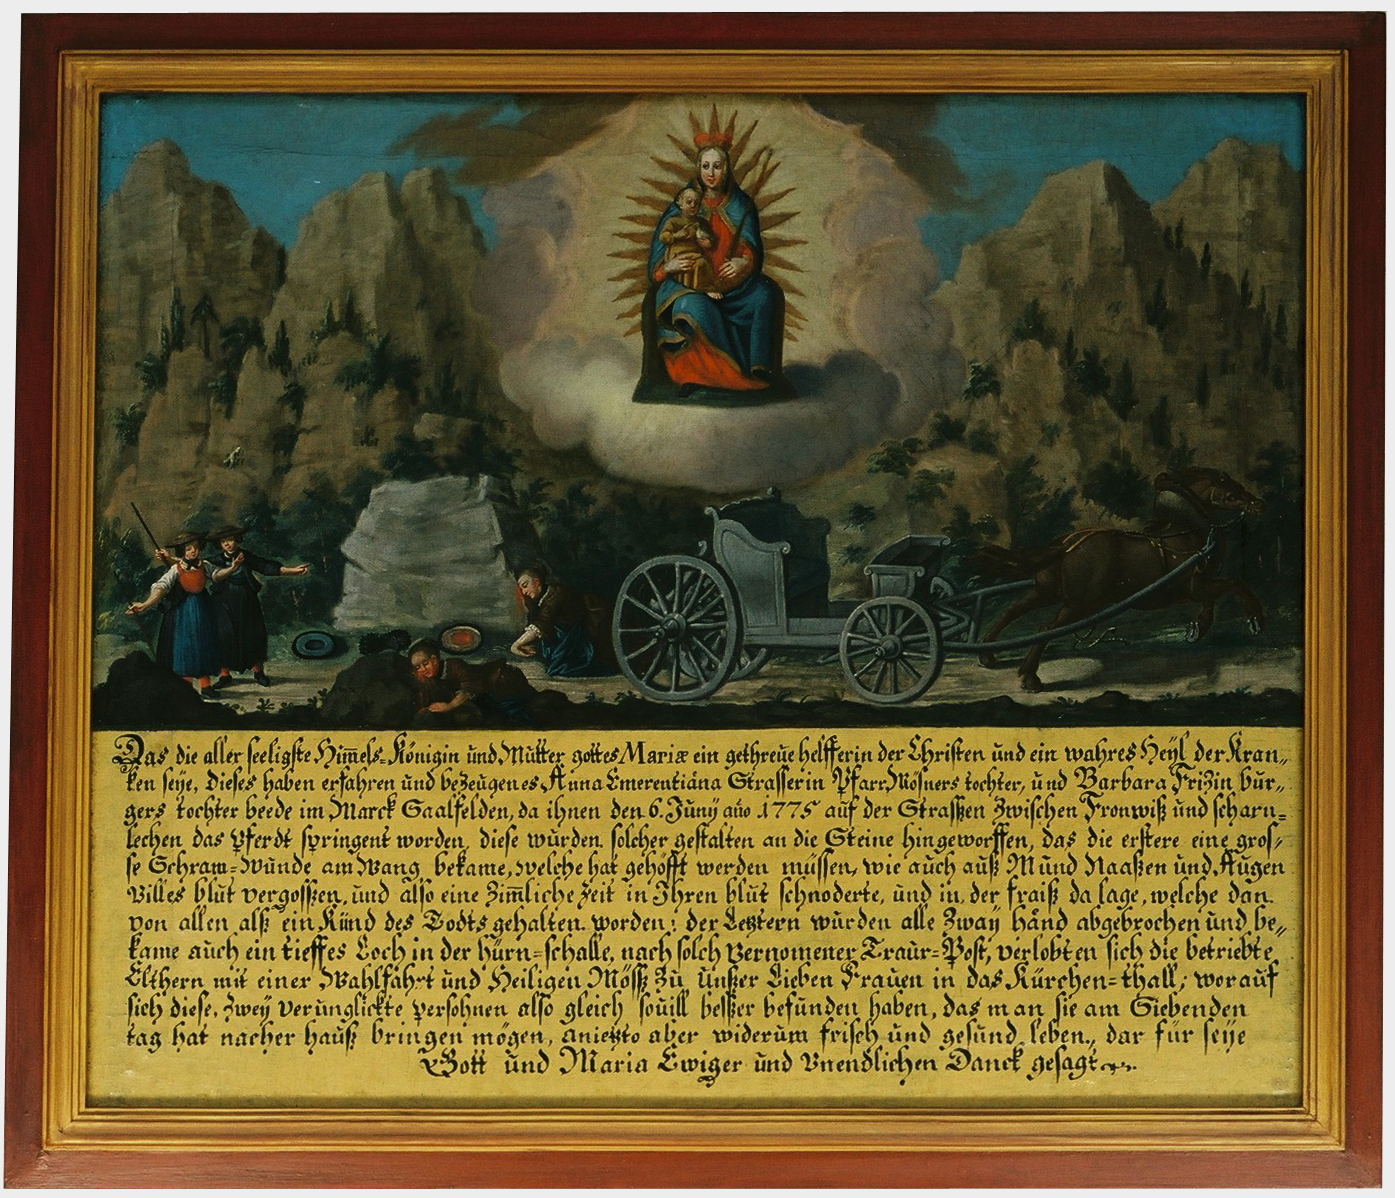 Das die aller seeligste Him̅els=Königin und Mutter gottes Mariæ ein gethreue helfferin der Christen und ein wahres Heyl der Kran„
ken seye, Dieses haben erfahren und bezeugen es, Anna Emerentiana Strasserin Pfarr Mösners tochter, und Barbara Frizin bur„
gers tochter beede im Marck Saalfelden, da ihnen den 6. Junÿ año 1775 auf der Strasßen Zwischen Fronwiß und scharn=
lechen das Pferdt springent worden, diese wurden solcher gestalten an die Steine hingeworffen, das die erstere eine gros=
se Schram=Wunde am Wang bekame, welche hat gehofft werden müssen, wie auch auß Mund Naaßen und Augen
villes blut vergosßen, und also eine Zim̅liche Zeit in Ihren blut schnoderte, und in der fraiß da lage, welche dan
von allen alß ein Künd des Todts gehalten worden; der Letztern wurden alle Zwaÿ händ abgebrochen und be„
kame auch ein tieffes Loch in der Hürn=schalle, nach solch Vernomener Traur=Post, verlobten sich die betriebte
Elthern mit einer Wahlfahrt und Heiligen Mösß zu Unßer Lieben Frauen in das Kürchen=thall; worauf
sich diese Zweÿ verunglickte persohnen also gleich souill besßer befunden haben, das man sie am Siebenden
tag hat nacher hauß bringen mögen, anietzto aber widerum frisch und gesund leben, dar für seÿe
Gott und Maria Ewiger und Vnendlichen Danck gesagt